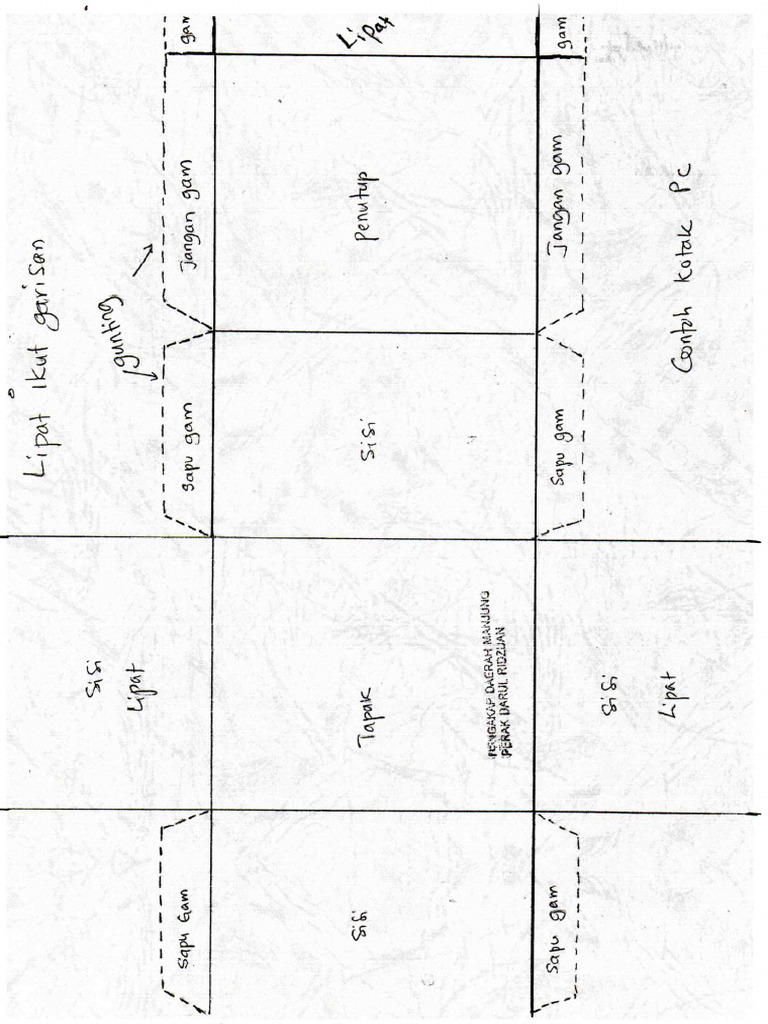 Lipat ikut garisan
gunting
gam
Jangan gam
Sapu gam
Sisi
Lipat
Sapu Gam
Lipat
Penutup
Sisi
Tapak
PENGAKAP DAERAH MANJUNG
PERAK DARUL RIDZUAN
Sisi
gam
Jangan gam
Sapu gam
Sisi
Lipat
Sapu gam
Contoh Kotak PC